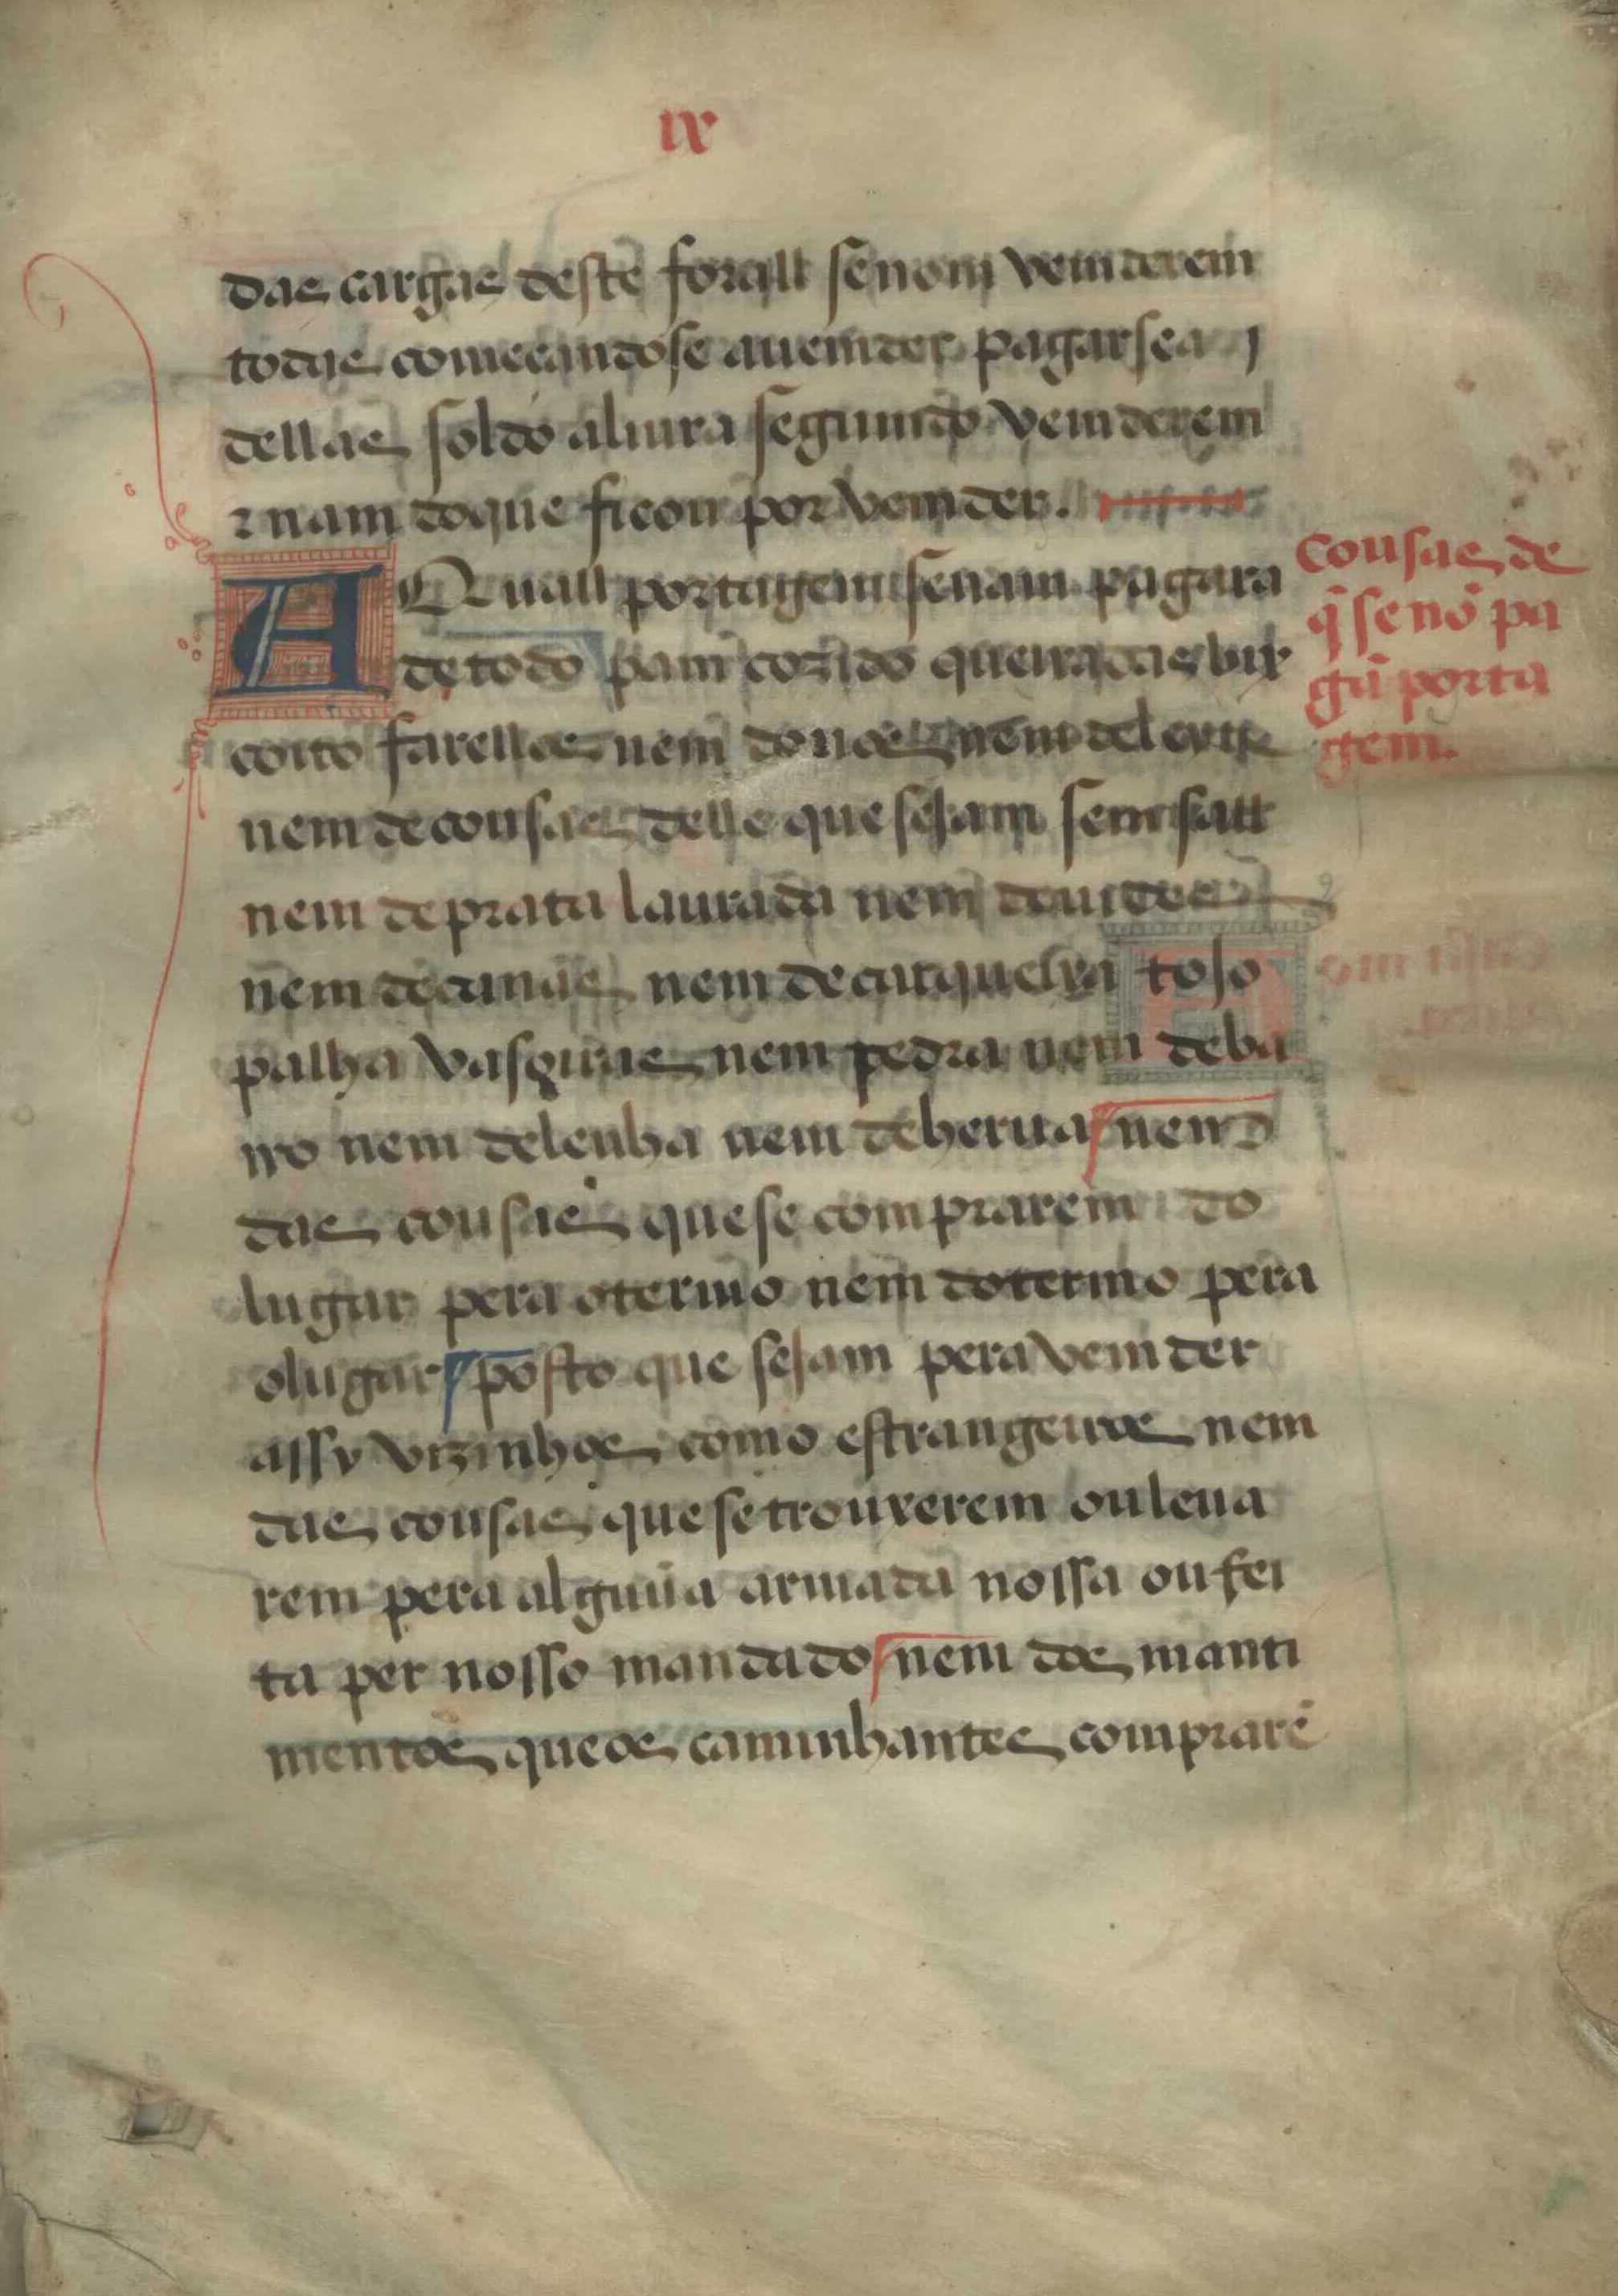 ix
das cargas deste forall se nom vemderem
todas comecando se a uemder pagar se a
dellas soldo a liura segumdo vemderem
⁊ nam do que ficou por vemder.
A Quall portagem se nam pagara
de todo pam cozido queiradas bix
coito farellos nem douos nem de leyte
nem de cousas delle que seJam sem sall
nem de prata laurada nem
nem de canas nem de carqueIya toJo
palha vasouras nem pedra nem de ba
rro nem de lenha nem de herua nem
das cousas que se comprarem do
lugar pera o termo nem do termo pera
o lugar posto que seJam pera vemder
assy vizinhos como estrangeiros nem
das cousas que se trouxerem ou leua
rem pera alguũa armada nossa ou fei
ta per nosso mandado nem dos manti
mentos que os caminhantes comprarẽ
cousas de
q̃ se nõ pa
gũ porta
gem.